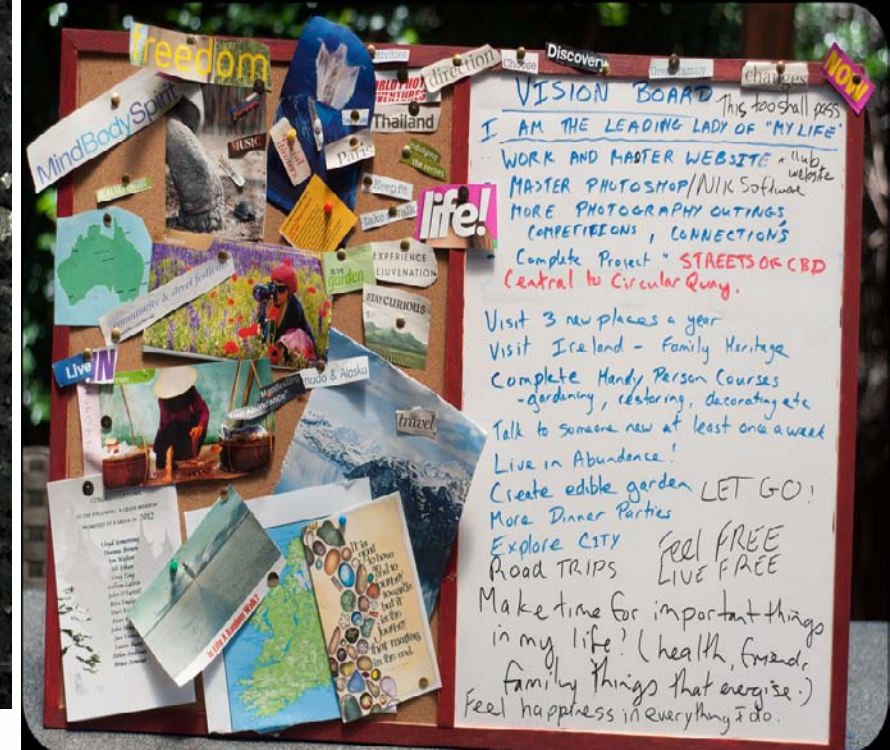 freedom
MindBodySpirit
MUSIC
WORLD PHOTO
ADVENTURES
direction
Choose
Discovery
changes
NOW
Thailand
Paris
Indulging
the senses
Keep fit
take a walk
life!
garden
EXPERIENCE
REJUVENATION
STAY CURIOUS
community & street festivals
Live IN
Manifesting
Abundance
& Alaska
travel
IN THE FOLLOWING
PROMOTED TO
2012
Is Life A Random Walk?
It is
good
to have
an end to
journey
towards
but it
is the
journey
that matters
in the end.
VISION BOARD
This too shall pass
I AM THE LEADING LADY OF "MY LIFE"
WORK AND MASTER WEBSITE + club
website
MASTER PHOTOSHOP/NIK Software
MORE PHOTOGRAPHY OUTINGS,
COMPETITIONS, CONNECTIONS
Complete Project " STREETS OF CBD
Central to Circular Quay.
Visit 3 new places a year
Visit Ireland - Family Heritage
Complete Handy Person Courses
-gardening, restoring, decorating etc
Talk to someone new at least once a week
Live in Abundance!
Create edible garden LET GO!
More Dinner Parties
Explore CITY Feel FREE
ROAD TRIPS LIVE FREE
Make time for important things
in my life! (health, friends,
family things that energise.)
Feel happiness in everything I do.